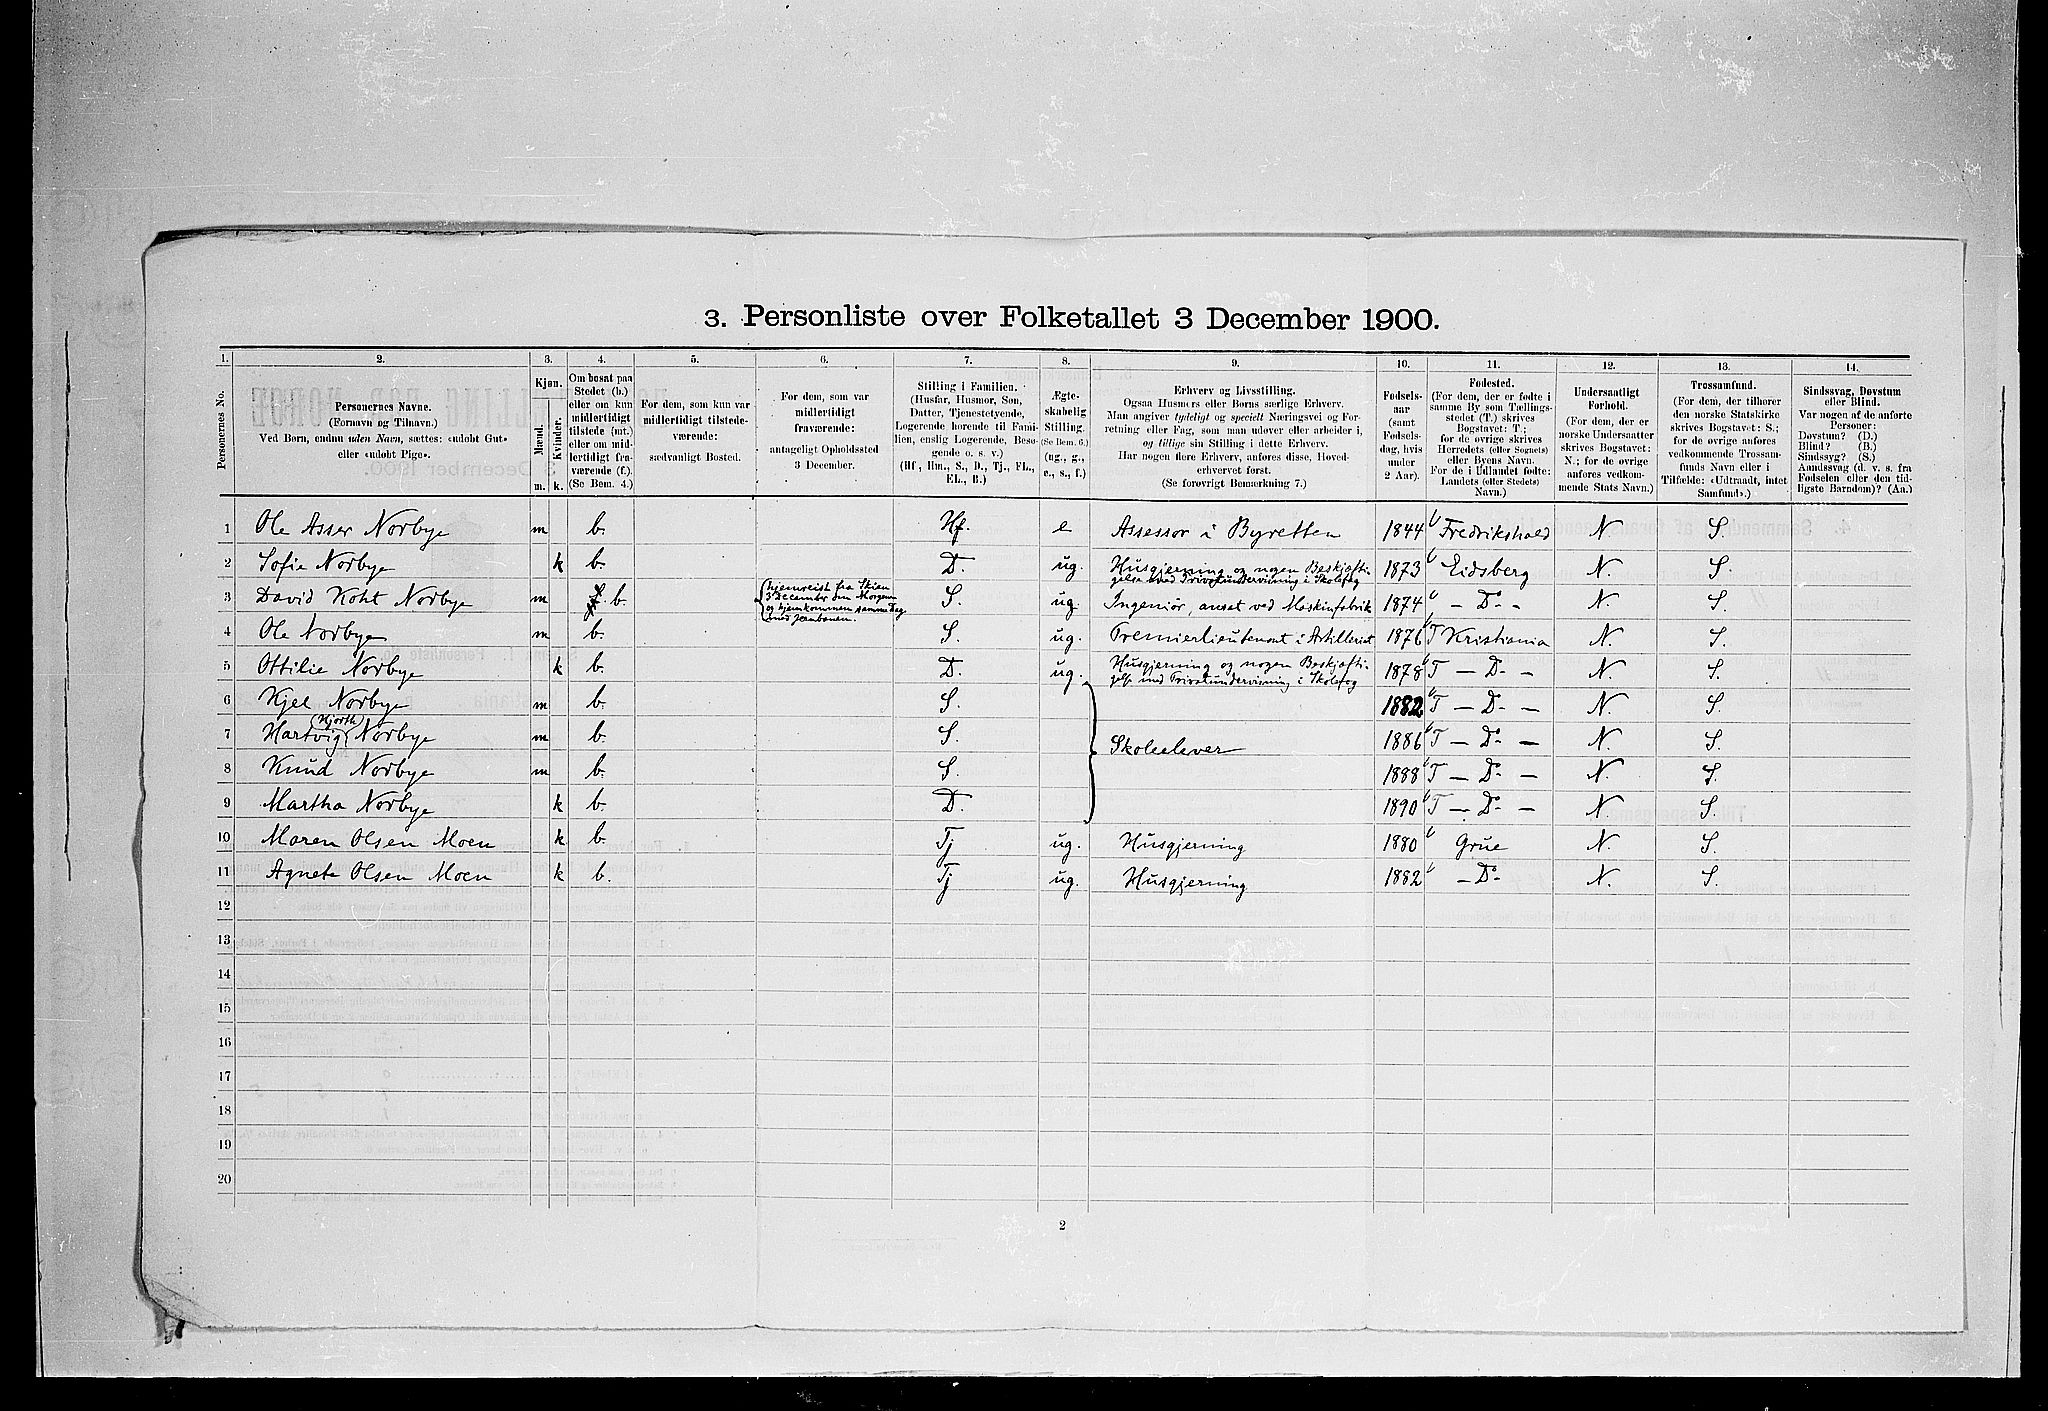 3. Personliste over Folketallet 3 December 1900.
1. 2. 3. 4. 5. 6. 7. 8. 9. 10. 11. 12. 13. 14.
Personernes No.
Personernes Navne.
(Fornavn og Tilnavn.)
Ved Børn, endnu uden Navn, sættes: «udøbt Gut»
eller «udøbt Pige».
Kjøn.
Mænd. Kvinder.
m. k.
Om bosat paa
Stedet (b.)
eller om kun
midlertidigt
tilstede (mt.)
eller om mid-
lertidigt fra-
værende (f.)
(Se Bem. 4.)
For dem, som kun var
midlertidigt tilstede-
værende:
sædvanligt Bosted.
For dem, som var
midlertidigt
fraværende:
antageligt Opholdssted
3 December.
Stilling i Familien.
(Husfar, Husmor, Søn,
Datter, Tjenestetyende,
Logerende hørende til Fami-
lien, enslig Logerende, Besø-
gende o. s. v.)
(Hf, Hm., S., D., Tj., FL.,
EL., B.)
Ægte-
skabelig
Stilling.
(Se Bem. 6.)
(ug., g.,
e., s., f.)
Erhverv og Livsstilling.
Ogsaa Husmors eller Børns særlige Erhverv.
Man angiver tydeligt og specielt Næringsvei og For-
retning eller Fag, som man udøver eller arbeider i,
og tillige sin Stilling i dette Erhverv.
Har nogen flere Erhverv, anføres disse, Hoved-
erhvervet først.
(Se forøvrigt Bemærkning 7.)
Fødsels-
aar
(samt
Fødsels-
dag, hvis
under
2 Aar).
Fødested.
(For dem, der er fødte i
samme By som Tællings-
stedet (T.) skrives
Bogstavet: T.;
for de øvrige skrives
Herredets (eller Sognets)
eller Byens Navn.
For de i Udlandet fødte:
Landets (eller Stedets)
Navn.)
Undersaatligt
Forhold.
(For dem, der er
norske Undersaatter
skrives Bogstavet:
N.; for de øvrige
anføres vedkom-
mende Stats Navn.)
Trossamfund.
(For dem, der tilhører
den norske Statskirke
skrives Bogstavet: S.;
for de øvrige anføres
vedkommende Trossam-
funds Navn eller i
Tilfælde: «Udtraadt, intet
Samfund».)
Sindssvag, Døvstum
eller Blind.
Var nogen af de anførte
Personer:
Døvstum? (D.)
Blind? (B.)
Sindssyg? (S.)
Aandssvag (d. v. s. fra
Fødselen eller den tid-
ligste Barndom)? (Aa.)
1 Ole Asser Norbye m b. Hf. e Assessor i Byretten 1844 Fredrikshald N. S.
2 Sofie Norbye k b. D. ug. Husgjerning og nogen Beskjæfti-
gelse med Privatundervisning i Skolefag 1873 Eidsberg N. S.
3 David Koht Norbye m b. hjemreist fra Skien
3 December om Morgenen
og hjemkommen samme Dag
med Jernbanen. S. ug. Ingeniør, ansat ved Maskinfabrik 1874 - Do - N. S.
4 Ole Norbye m b. S. ug. Premierlieutenant i Artilleriet 1876 T Kristiania N. S.
5 Ottilie Norbye k b. D. ug. Husgjerning og nogen Beskjæfti-
gelse med Privatundervisning i Skolefag 1878 T - Do - N. S.
6 Kjel Norbye m b. S. 1882 T - Do - N. S.
7 Hartvig (Hjorth) Norbye m b. S. Skoleelever 1886 T - Do - N. S.
8 Knud Norbye m b. S. 1888 T - Do - N. S.
9 Martha Norbye k b. D. 1890 T - Do - N. S.
10 Maren Olsen Moen k b. Tj ug. Husgjerning 1880 Grue N. S.
11 Agnete Olsen Moen k b. Tj ug. Husgjerning 1882 - Do - N. S.
12
13
14
15
16
17
18
19
20
2